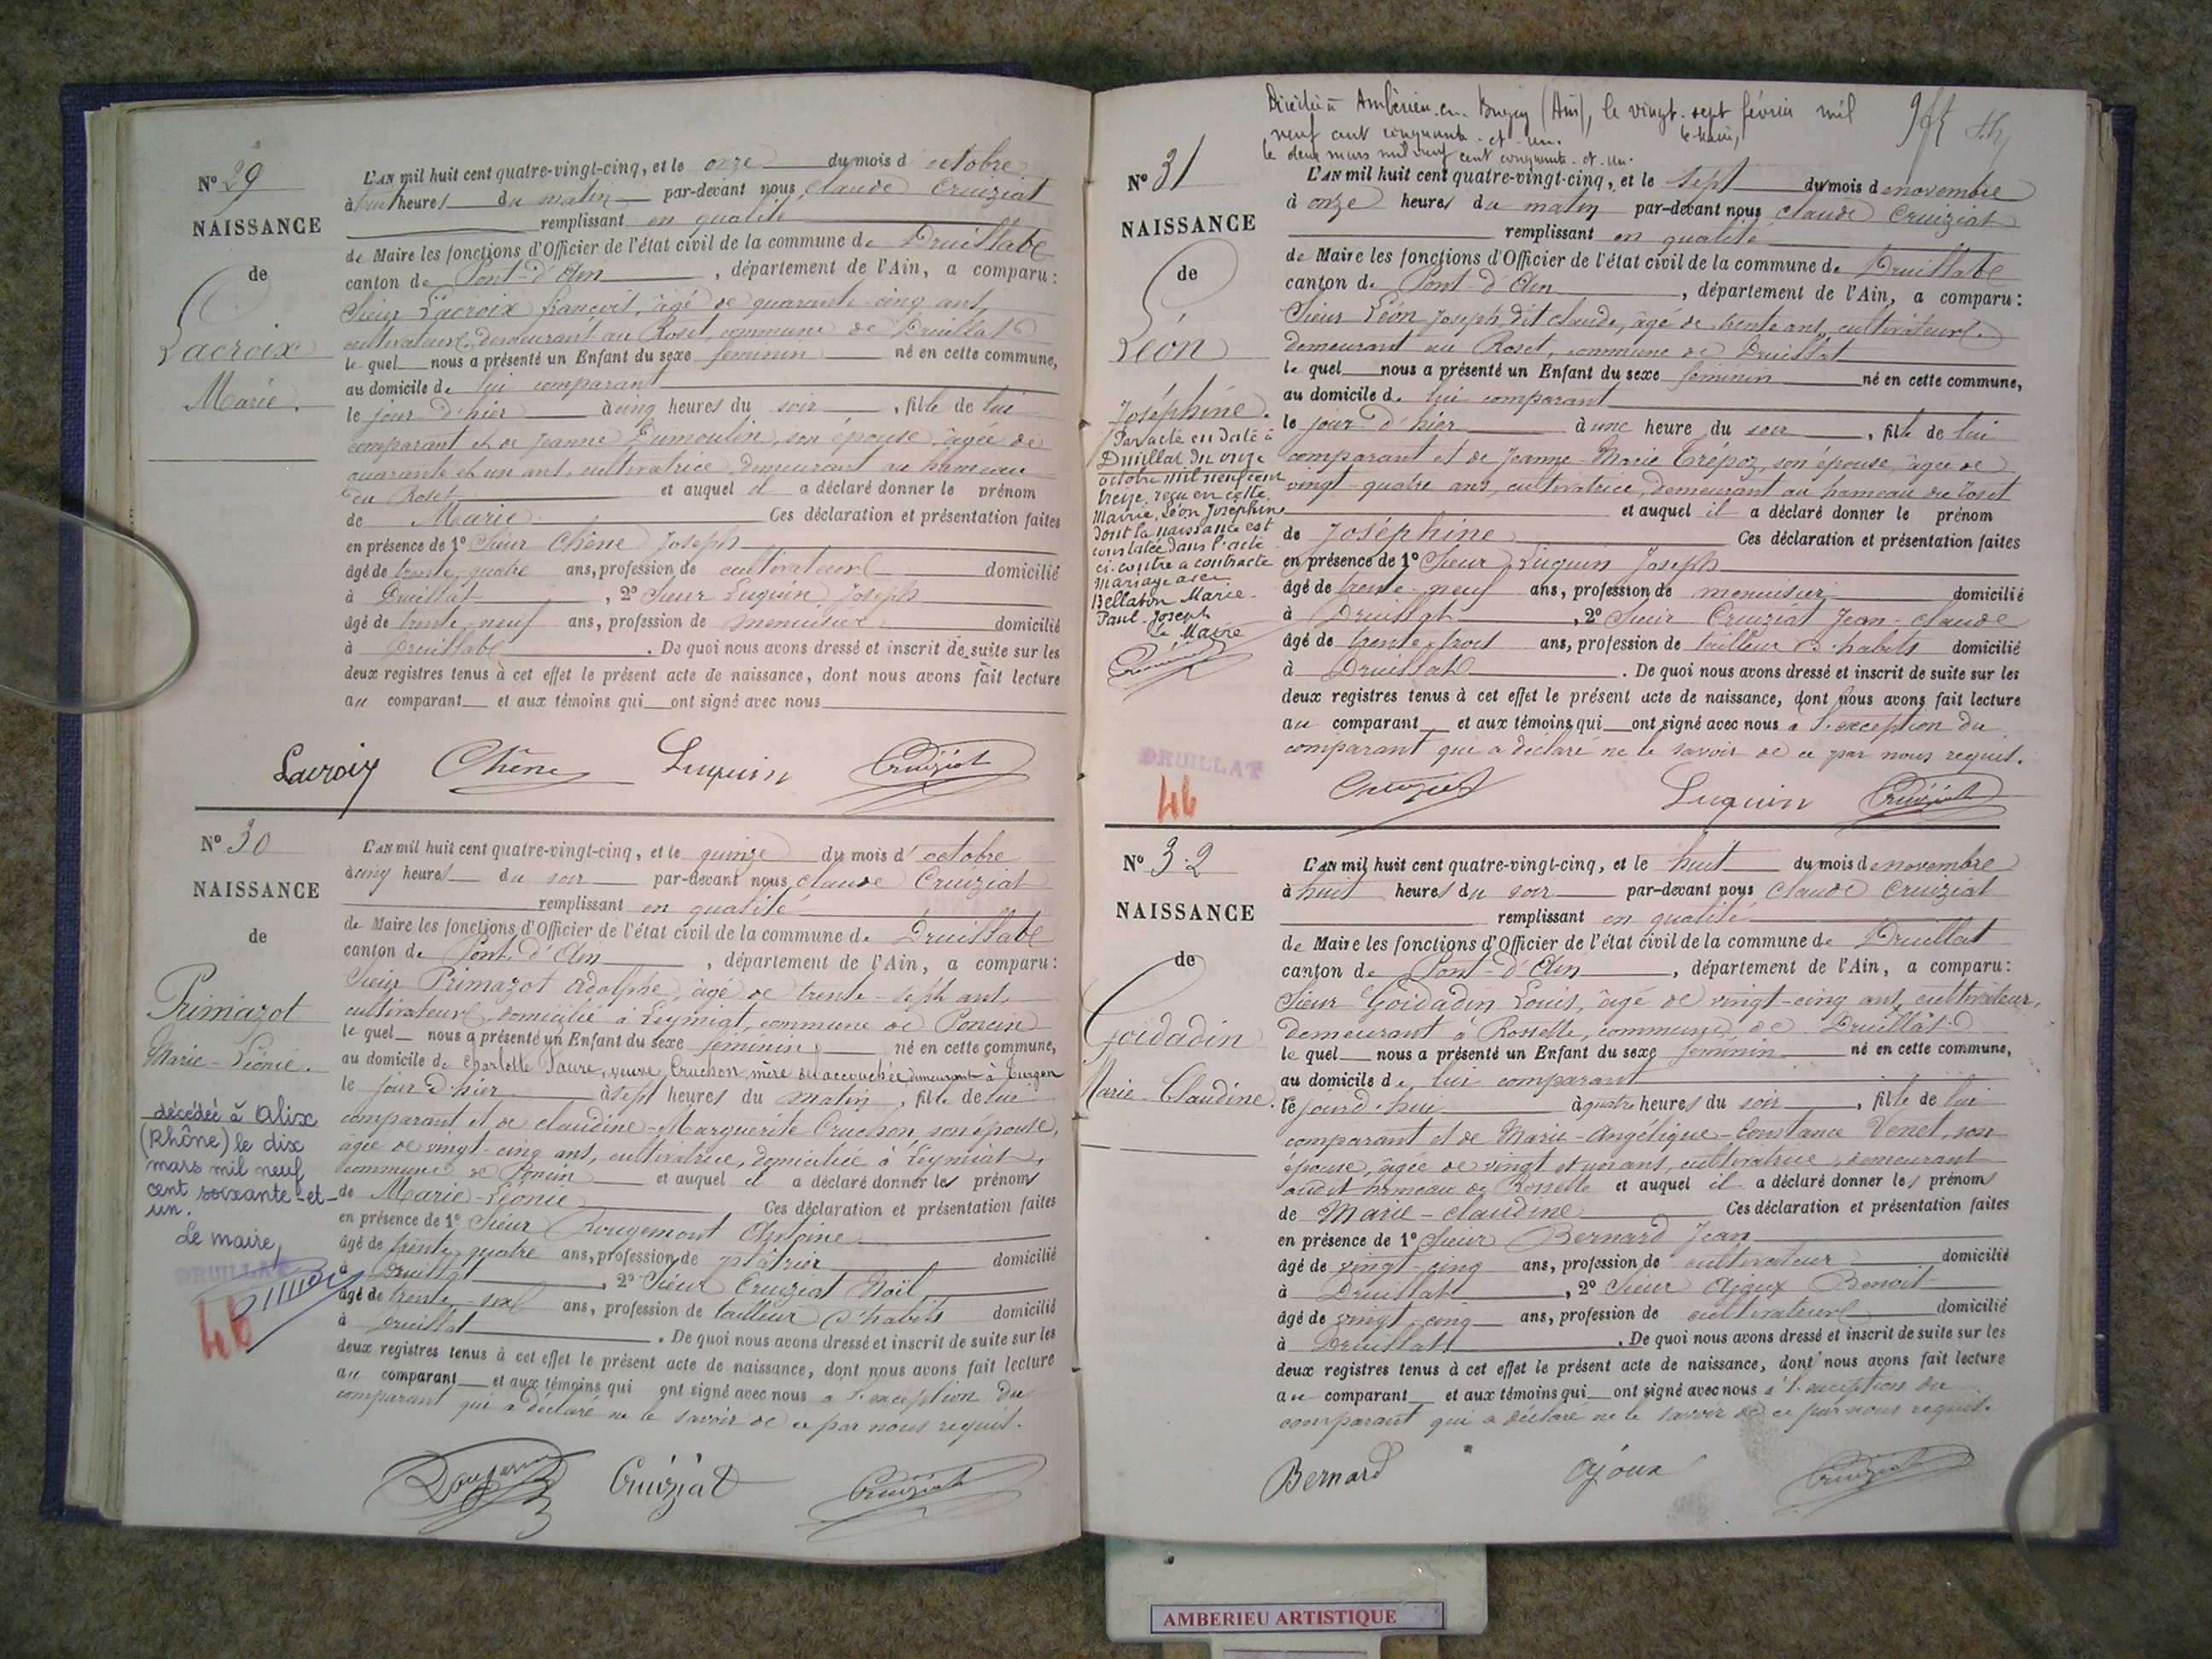 Nº 29
NAISSANCE
de
Lacroix
Marie.
L'AN mil huit cent quatre-vingt-cinq, et le onze du mois d'octobre
à huit heures du matin par-devant nous Claude Cruiziat
remplissant en qualité
de Maire les fonctions d'Officier de l'état civil de la commune de Druillat
canton de Pont-d'Ain, département de l'Ain, a comparu:
Sieur Lacroix françois, âgé de quarante-cinq ans,
cultivateur, demeurant au Roset, commune de Druillat
lequel nous a présenté un Enfant du sexe féminin né en cette commune,
au domicile de lui comparant
le jour d'hier à cinq heures du soir, fille de lui
comparant et de Jeanne Dumoulin, son épouse, âgée de
quarante et un ans, cultivatrice, demeurant au hameau
du Roset et auquel il a déclaré donner le prénom
de Marie Ces déclaration et présentation faites
en présence de 1º Sieur Chêne Joseph
âgé de trente-quatre ans, profession de cultivateur domicilié
à Druillat, 2º Sieur Luquin Joseph
âgé de trente-neuf ans, profession de menuisier domicilié
à Druillat. De quoi nous avons dressé et inscrit de suite sur les
deux registres tenus à cet effet le présent acte de naissance, dont nous avons fait lecture
au comparant et aux témoins qui ont signé avec nous
Lacroix Chêne Luquin Cruiziat
Nº 30
NAISSANCE
de
Primazot
Marie-Léonie.
décédée à Alix
(Rhône) le dix
mars mil neuf
cent soixante-et-
un.
Le maire,
DRUILLAT
46
L'AN mil huit cent quatre-vingt-cinq, et le quinze du mois d'octobre
à cinq heures du soir par-devant nous Claude Cruiziat
remplissant en qualité
de Maire les fonctions d'Officier de l'état civil de la commune de Druillat
canton de Pont-d'Ain, département de l'Ain, a comparu:
Sieur Primazot Adolphe, âgé de trente-sept ans,
cultivateur, domicilié à Leymiat, commune de Poncin
lequel nous a présenté un Enfant du sexe féminin né en cette commune,
au domicile de Charlotte Faure, veuve Cruchon, mère de l'accouchée, demeurant à Turgon
le jour d'hier à sept heures du matin, fille de lui
comparant et de Claudine-Marguerite Cruchon, son épouse,
âgée de vingt-cinq ans, cultivatrice, domiciliée à Leymiat,
commune de Poncin et auquel il a déclaré donner les prénoms
de Marie-Léonie Ces déclaration et présentation faites
en présence de 1º Sieur Rougemont Antoine
âgé de trente-quatre ans, profession de plâtrier domicilié
à Druillat, 2º Sieur Cruiziat Noël
âgé de trente-six ans, profession de tailleur d'habits domicilié
à Druillat. De quoi nous avons dressé et inscrit de suite sur les
deux registres tenus à cet effet le présent acte de naissance, dont nous avons fait lecture
au comparant et aux témoins qui ont signé avec nous à l'exception du
comparant qui a déclaré ne le savoir de ce par nous requis.
Cruiziat Cruiziat
Décédée à Ambérieu-en-Bugey (Ain), le vingt-sept février mil
neuf cent cinquante-et-un. le Maire,
le deux mars mil neuf cent cinquante-et-un.
Nº 31
NAISSANCE
de
Léon
Joséphine.
Par acte en date à
Druillat du onze
octobre mil neuf cent
treize, reçu en cette
Mairie, Léon Joséphine
dont la naissance est
constatée dans l'acte
ci-contre a contracté
mariage avec
Bellaton Marie-
Paul-Joseph
Le Maire
DRUILLAT
46
L'AN mil huit cent quatre-vingt-cinq, et le sept du mois de novembre
à onze heures du matin par-devant nous Claude Cruiziat
remplissant en qualité
de Maire les fonctions d'Officier de l'état civil de la commune de Druillat
canton de Pont-d'Ain, département de l'Ain, a comparu:
Sieur Léon Joseph, dit Claude, âgé de trente ans, cultivateur,
demeurant au Roset, commune de Druillat
lequel nous a présenté un Enfant du sexe féminin né en cette commune,
au domicile de lui comparant
le jour d'hier à une heure du soir, fille de lui
comparant et de Jeanne-Marie Trépoz, son épouse, âgée de
vingt-quatre ans, cultivatrice, demeurant au hameau du Roset
et auquel il a déclaré donner le prénom
de Joséphine Ces déclaration et présentation faites
en présence de 1º Sieur Luquin Joseph
âgé de trente-neuf ans, profession de menuisier domicilié
à Druillat, 2º Sieur Cruiziat Jean-Claude
âgé de trente-trois ans, profession de tailleur d'habits domicilié
à Druillat. De quoi nous avons dressé et inscrit de suite sur les
deux registres tenus à cet effet le présent acte de naissance, dont nous avons fait lecture
au comparant et aux témoins qui ont signé avec nous à l'exception du
comparant qui a déclaré ne le savoir de ce par nous requis.
Cruiziat Luquin Cruiziat
Nº 32
NAISSANCE
de
Goidadin
Marie-Claudine.
L'AN mil huit cent quatre-vingt-cinq, et le huit du mois de novembre
à huit heures du soir par-devant nous Claude Cruiziat
remplissant en qualité
de Maire les fonctions d'Officier de l'état civil de la commune de Druillat
canton de Pont-d'Ain, département de l'Ain, a comparu:
Sieur Goidadin Louis, âgé de vingt-cinq ans, cultivateur,
demeurant à Rosselle, commune de Druillat
lequel nous a présenté un Enfant du sexe féminin né en cette commune,
au domicile de lui comparant
le jourd'hui à quatre heures du soir, fille de lui
comparant et de Marie-Angélique-Constance Venet, son
épouse, âgée de vingt et un ans, cultivatrice, demeurant
audit hameau de Rosselle et auquel il a déclaré donner les prénoms
de Marie-Claudine Ces déclaration et présentation faites
en présence de 1º Sieur Bernard Jean
âgé de vingt-cinq ans, profession de cultivateur domicilié
à Druillat, 2º Sieur Ajoux Benoit
âgé de vingt-cinq ans, profession de cultivateur domicilié
à Druillat. De quoi nous avons dressé et inscrit de suite sur les
deux registres tenus à cet effet le présent acte de naissance, dont nous avons fait lecture
au comparant et aux témoins qui ont signé avec nous à l'exception du
comparant qui a déclaré ne le savoir de ce par nous requis.
Bernard Ajoux Cruiziat
AMBERIEU ARTISTIQUE